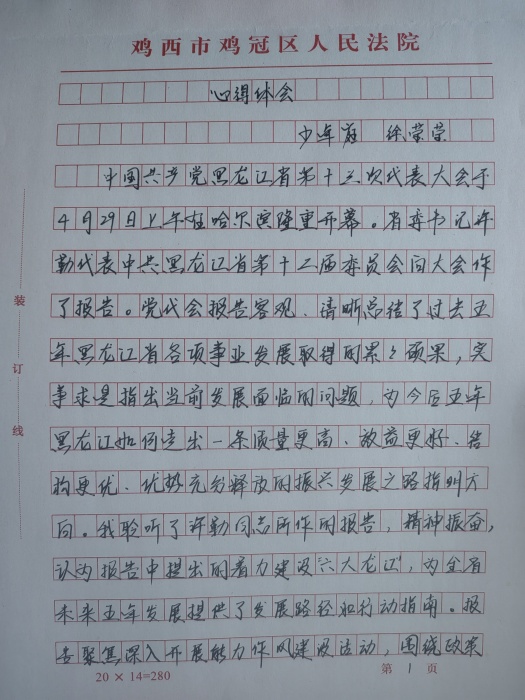 鸡西市鸡冠区人民法院
心得体会
少年庭 徐荣荣
中国共产党黑龙江省第十三次代表大会于
4月29日上午在哈尔滨隆重开幕。省委书记许
勤代表中共黑龙江省第十二届委员会向大会作
了报告。党代会报告客观、清晰总结了过去五
年黑龙江省各项事业发展取得的累累硕果，实
事求是指出当前发展面临的问题，为今后五年
黑龙江如何走出一条质量更高、效益更好、结
构更优、优势充分释放的振兴发展之路指明方
向。我聆听了许勤同志所作的报告，精神振奋，
认为报告中提出的着力建设“六大龙江”，为全省
未来五年发展提供了发展路径和行动指南。报
告聚焦深入开展能力作风建设活动，围绕政策
装
订
线
20×14=280
第1页